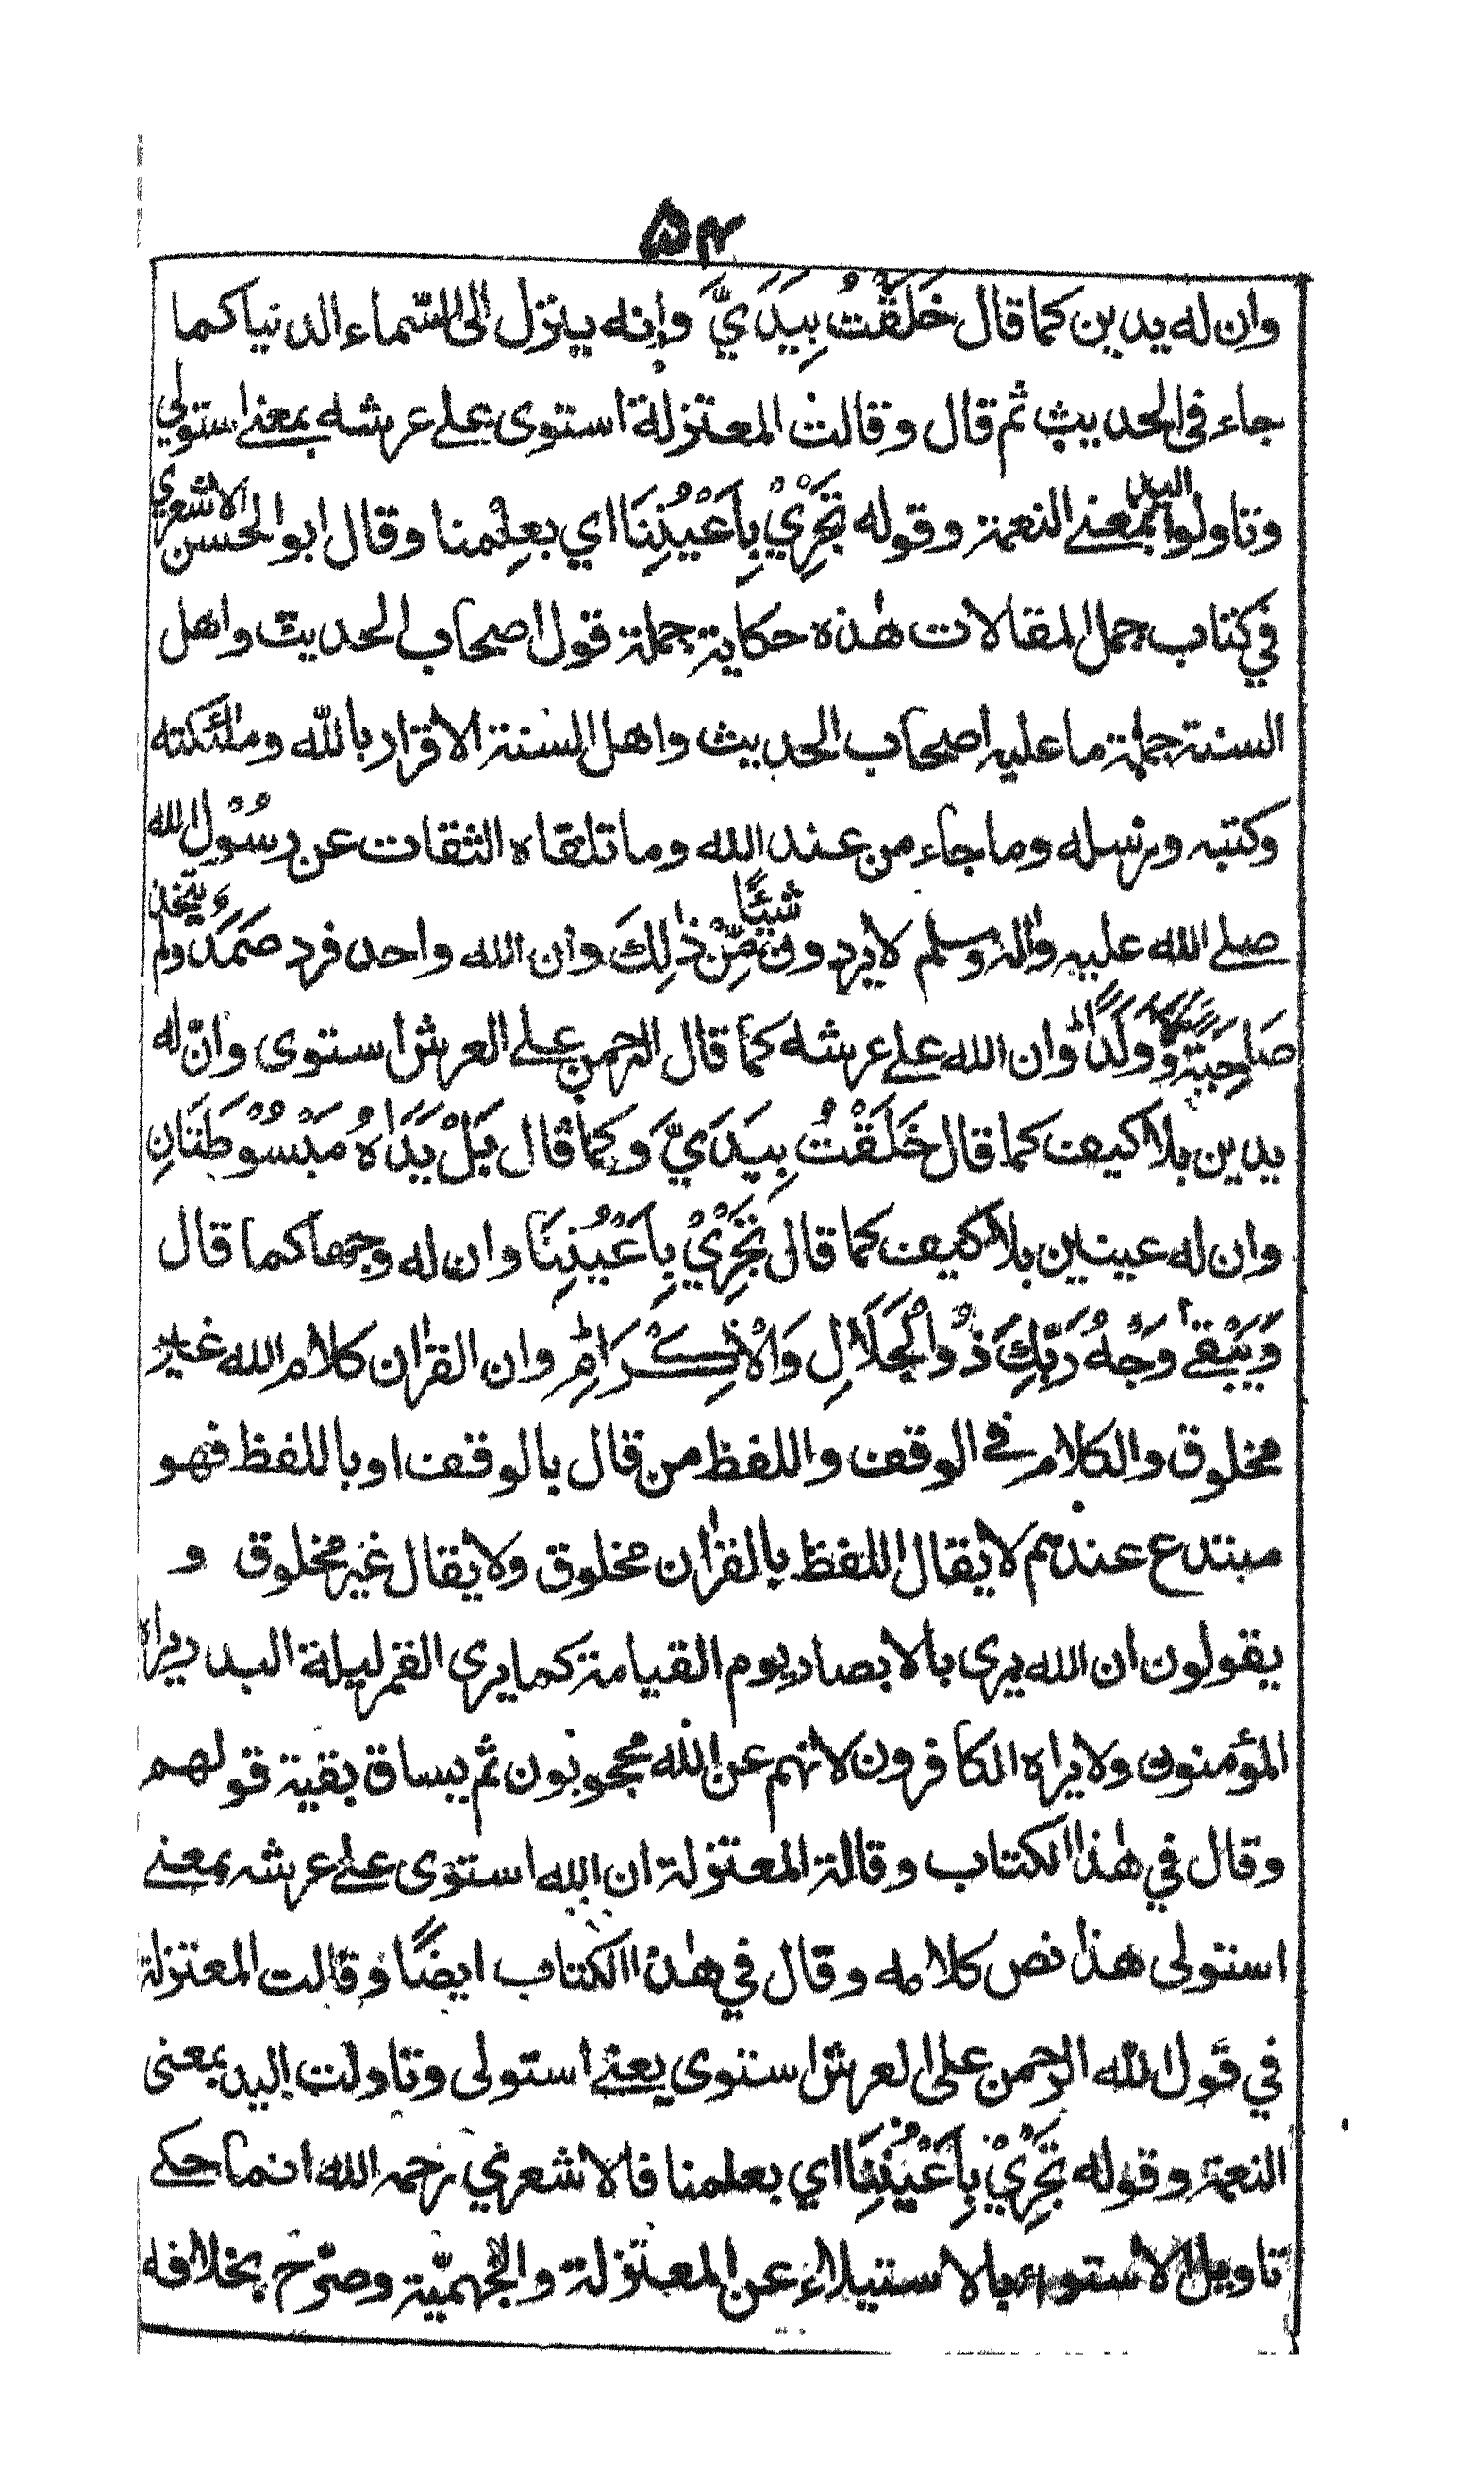 ۵۴
وان له يدين كما قال خَلَقْتُ بِيَدَيَّ وانه ينزل الى السّماء الدنيا كما
جاء في الحديث ثم قال وقالت المعتزلة استوى على عرشه بمعنے استولي
وتاولوا اليد بمعنے النعمة وقوله تَجْرِيْ بِاَعْيُنِنَا اي بعلمنا وقال ابو الحسن الاشعري
في كتاب جمل المقالات هٰذه حكاية جملة قول اصحاب الحديث واهل
السنة جملة ما عليه اصحاب الحديث واهل السنة الاقرار بالله وملٰئكته
وكتبه ورسله وما جاء من عند الله وما تلقاه الثقات عن رسُوْل الله
صلے الله عليه واٰله وسلم لا يردون شيئًا مِّنْ ذٰلِكَ وان الله واحد فرد صَمَدٌ ولم يتخذ
صَاحِبَةً وَّ وَلَدًا وان الله علے عرشه كما قال الرحمن علے العرش استوى وانّ له
يدين بلا كيف كما قال خَلَقْتُ بِيَدَيَّ وَكما قال بَلْ يَدَاهُ مَبْسُوْطَتَانِ
وان له عينين بلا كيف كما قال تَجْرِيْ بِاَعْيُنِنَا وان له وجها كما قال
وَيَبْقٰے وَجْهُ رَبِّكَ ذُو الْجَلَالِ وَالْاِكْرَامِ وان القراٰن كلام الله غير
مخلوق والكلام في الوقف واللفظ من قال بالوقف او باللفظ فهو
مبتدع عندهم لا يقال اللفظ بالقراٰن مخلوق ولا يقال غير مخلوق و
يقولون ان الله يرى بالابصار يوم القيامة كما يرى القمر ليلة البدر يراه
المؤمنون ولا يراه الكافرون لانهم عن الله محجوبون ثم يساق بقية قولهم
وقال في هٰذا الكتاب وقالة المعتزلة ان الله استوى علے عرشه بمعنے
استولى هذا نص كلامه وقال في هٰذا الكتاب ايضًا وقالت المعتزلة
في قول الله الرحمن على العرش استوى يعنے استولى وتاولت اليد بمعنى
النعمة وقوله تَجْرِيْ بِاَعْيُنِنَا اي بعلمنا فالاشعري رحمه الله انما حكے
تاويل الاستواء بالاستيلاء عن المعتزلة والجهميّة وصرّح بخلافه